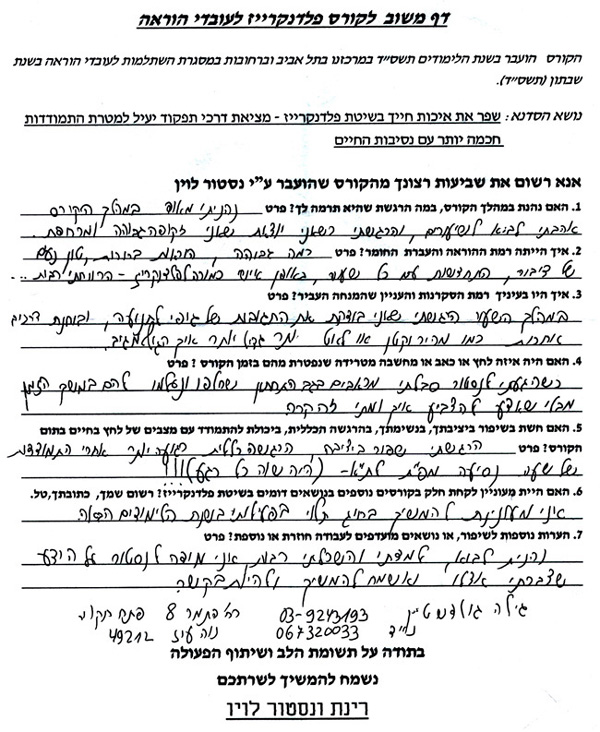 דף משוב לקורס פלדנקרייז לעובדי הוראה
הקורס הועבר בשנת הלימודים תשס״ד במרכזנו בתל אביב וברחובות במסגרת השתלמות לעובדי הוראה בשנת
שבתון (תשס״ד).
נושא הסדנא: שפר את איכות חייך בשיטת פלדנקרייז - מציאת דרכי תפקוד יעיל למטרת התמודדות
חכמה יותר עם נסיבות החיים
אנא רשום את שביעות רצונך מהקורס שהועבר ע״י נסטור לוין
1. האם נהנת במהלך הקורס, במה הרגשת שהיא תרמה לך? פרט נהניתי מאוד במהלך הקורס
אהבתי לבוא לשיעורים, והרגשתי כשאני יוצאת שאני זקופה גבוהה ומרחפת.
2. איך הייתה רמת ההוראה והעברת החומר? פרט רמה גבוהה, הוראות ברורות, טון נעים
של דיבור, התחדשות עם כל שעור, באופן אישי כמורה לפלדנקרייז - הרווחתי רבות...
3. איך היו בעיניך רמת הסקרנות והעניין שהמנחה העביר? פרט
במהלך השעור הרגשתי שאני בודקת את התגובות של גופי לתנועה, ובוחנת דרכים
אחרות כמו מהיר וקטן או לאט יותר גדול יותר איך הגוף מגיב.
4. האם היה איזה לחץ או כאב או מחשבה מטרידה שנפטרת מהם בזמן הקורס? פרט
כשהגעתי לנסטור סבלתי מכאבים בגב התחתון שחלפו ונעלמו להם במשך הזמן
מבלי שאדע להצביע איך ומתי זה קרה
5. האם חשת בשיפור ביציבתך, בנשימתך, בהרגשה הכללית, ביכולת להתמודד עם מצבים של לחץ בחיים בתום
הקורס? פרט הרגשתי שפור ביציבה, הרגשה כללית רגועה יותר אחרי התמודדות
של שעה נסיעה מפ״ת לת״א - (היה שווה כל רגע)!!!
6. האם היית מעוניין לקחת חלק בקורסים נוספים בנושאים דומים בשיטת פלדנקרייז? רשום שמך, כתובתך, טל.
אני מעונינת להמשיך בפעילות בשנת הלימודים הבאה.
7. הערות נוספות לשיפור, או נושאים מועדפים לעבודה חוזרת או נוספת? פרט
נהנית לבוא, למדתי והשכלתי רבות אני מודה לנסטור על הידע
שצברתי אצלו ואשמח להמשיך ולהיות בקשר.
גילה גולדשטיין 03-9243193 רח׳ התמר 8 פתח תקוה
נייד 067320033 נוה עוז 49212
בתודה על תשומת הלב ושיתוף הפעולה
נשמח להמשיך לשרתכם
רינת ונסטור לוין